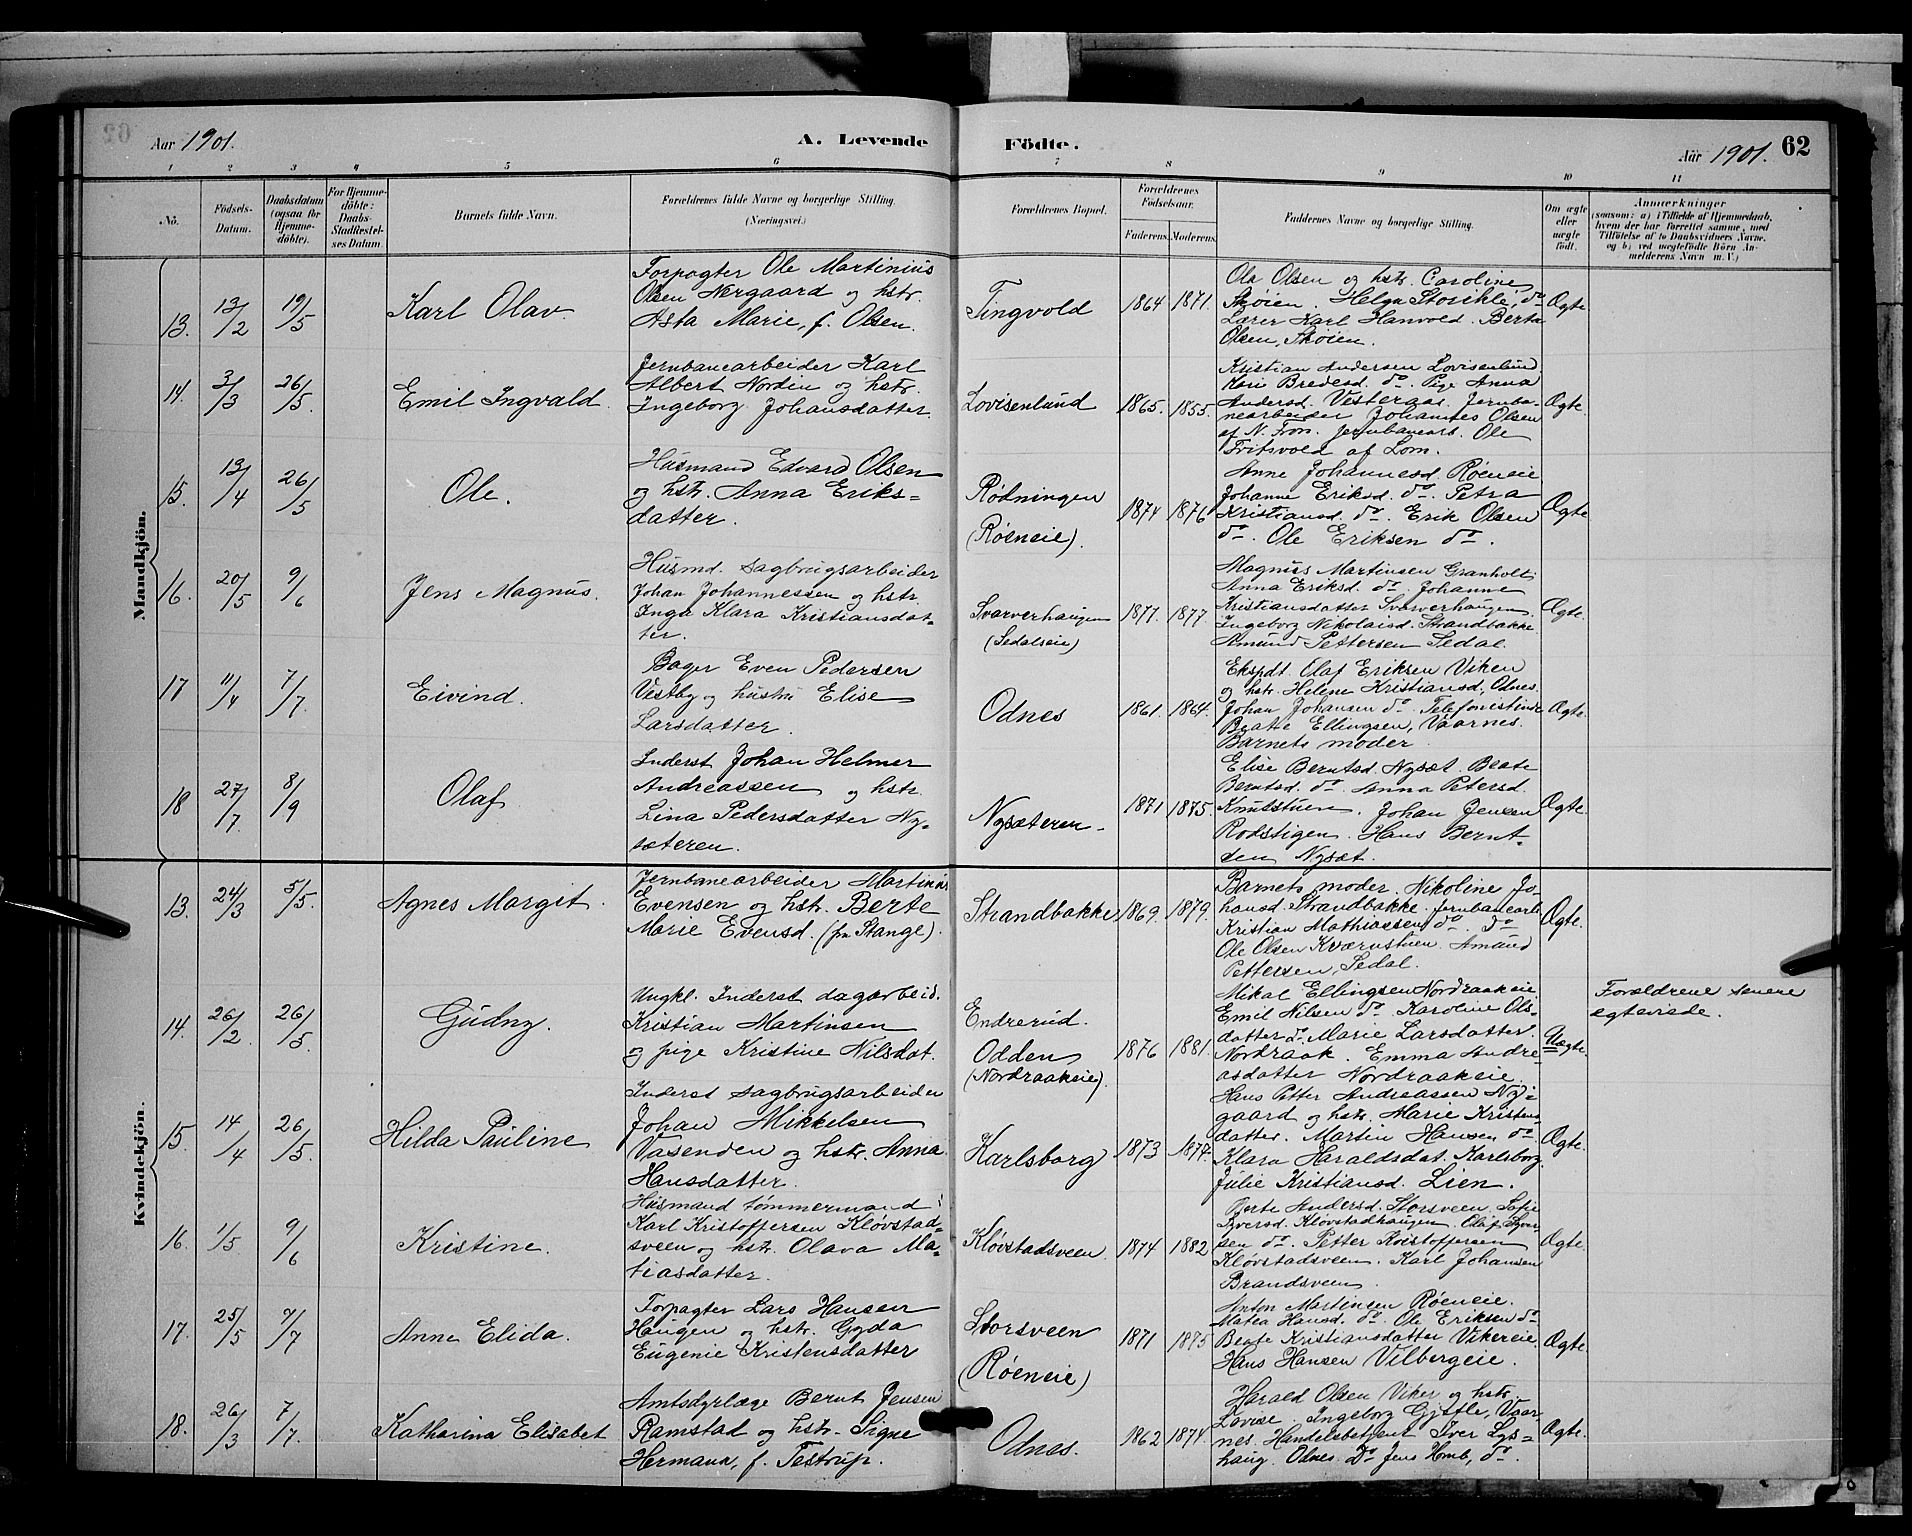 Aar 1901.
A. Levende
Födte.
Aar 1901.
62
1 2 3 4 5 6 7 8 9 10 11
No.
Födsels-
Datum.
Daabsdatum
(ogsaa for
Hjemme-
döbte).
For Hjemme-
döbte:
Daabs-
Stadfæstel-
ses Datum.
Barnets fulde Navn.
Forældrenes fulde Navne og borgerlige Stilling.
(Næringsvei.)
Forældrenes Bopæl.
Forældrenes
Födselsaar.
Faderens. Moderens.
Faddernes Navne og borgerlige Stilling.
Om ægte
eller
uægte
födt.
Anmærkninger
(saasom: a) i Tilfælde af Hjemmedaab,
hvem der har forrettet samme, med
Tilföielse af to Daabsvidners Navne,
og b) ved uægtefödte Börn An-
melderens Navn m. V.)
Mandkjön.
13. 13/2 19/5
Karl Olav.
Forpagter Ole Martinius
Olsen Nergaard og hstr.
Asta Marie, f. Olsen.
Tingvold
1864 1871.
Ole Olsen og hstr. Caroline
Skøien. Helga Storihle, do
Lærer Karl Hanvold. Berta
Olsen, Skøien.
Ægte
14. 3/3 26/5.
Emil Ingvald.
Jernbanearbeider Karl
Albert Nordin og hstr.
Ingeborg Johansdatter.
Lovisenlund
1865. 1855.
Kristian Andersen Lovisenlund.
Kari Bredesd. do. Pige Anna
Andersd. Vesteraas. Jernba-
nearbeider Johannes Olsen
af N. Fron. Jernbanearb. Ole
Tvitsvold af Lom.
Ægte.
15. 13/4 26/5
Ole.
Husmand Edvard Olsen
og hstr. Anna Eriks-
datter.
Rødningen
(Røeneie).
1874 1876
Anne Johannesd. Røeneie
Johanne Eriksd. do. Petra
Kristiansd. do. Erik Olsen
do. Ole Eriksen do.
Ægte
16. 20/5 9/6
Jens Magnus.
Husmd. sagbrugsarbeider
Johan Johannessen og hstr.
Inga Klara Kristiansdat-
ter.
Svarverhaugen
(Sedalseie)
1877. 1877.
Magnus Martinsen Granholt
Anna Eriksd. do. Johanne
Kristiansdatter Svarverhaugen.
Ingeborg Nikolaisd. Strandbakke
Amund Pettersen Sedal.
Ægte.
17 11/4 7/7.
Eivind.
Bager Even Pedersen
Vestby og hustru Elise
Larsdatter.
Odnes
1861. 1864.
Ekspdt. Olaf Eriksen Viken
og hstr. Helene Kristiansd. Odnes.
Johan Johansen do. Telefonistinde
Beate Ellingsen, Vaarnes.
Barnets moder.
Ægte.
18 27/7 8/9
Olaf.
Inderst Johan Helmer
Andreassen og hstr.
Lina Pedersdatter Ny-
sæteren.
Nysæteren.
1871 1875.
Elise Berntsd. Nysæt. Beate
Berntsd. do Anna Petersd.
Knutstuen. Johan Jensen
Rodstigen. Hans Bernt-
sen Nysæt.
Ægte.
Kvindekjön.
13. 24/3 5/5.
Agnes Margit.
Jernbanearbeider Martinus
Evensen og hstr. Berte
Marie Evensd. (fra Stange).
Strandbakke
1869. 1879.
Barnets moder. Nikoline Jo-
hansd. Strandbakke. Jernbanearb.
Kristian Mathiassen do. do
Ole Olsen Kværnstuen. Amund
Pettersen, Sedal.
Ægte.
14. 26/2. 26/5.
Gudny.
Ungkl. Inderst dagarbeid.
Kristian Martinsen
og pige Kristine Nilsdat.
Endrerud.
Odden
(Nordraakeie).
1876 1881.
Mikal Ellingsen Nordraakeie
Emil Nilsen do. Karoline Ols-
datter do. Marie Larsdatter.
Nordraak. Emma Andre-
asdatter Nordraakeie.
Uægte.
Forældrene senere
egteviede.
15. 14/4 26/5.
Hilda Pauline
Inderst sagbrugsarbeider
Johan Mikkelsen
Vasenden og hstr. Anna
Hansdatter.
Karlsborg
1873 1874.
Hans Petter Andreassen Ny-
gaard og hstr. Marie Kristens-
datter. Martin Hansen do.
Klara Haraldsdat. Karlsborg.
Julie Kristiansd. Lien.
Ægte.
16. 1/5 9/6
Kristine.
Husmand tømmermand
Karl Kristoffersen Kløvstad-
sveen og hstr. Olava Ma-
tiasdatter.
Kløvstadsveen
1874 1882
Berte Andersd. Storsveen. Sofie
Iversd. Kløvstadhaugen. Olaf Iver-
sen do. Petter Kristoffersen
Kløvstadsveen. Karl Johansen
Brandsveen.
Ægte.
17. 25/5 7/7
Anne Elida.
Forpagter Lars Hansen
Haugen og hstr. Gyda
Eugenie Kristensdatter
Storsveen
(Røeneie)
1871 1875
Anton Martinsen Røeneie.
Matea Hansd. do. Ole Eriksen do
Beate Kristiansdatter Vikereie.
Hans Hansen Vilbergeie.
Ægte.
18. 26/3 7/7.
Katharina Elisabet
Amtsdyrlæge Bernt Jensen
Ramstad og hstr. Signe
Hermana, f. Testrup.
Odnes.
1862 1874.
Harald Olsen Viker og hstr.
Lovise. Ingeborg Gjefle, Vaar-
nes. Handelsbetjent Iver Lys-
haug. Odnes. Do Jens Homb, do.
Ægte.